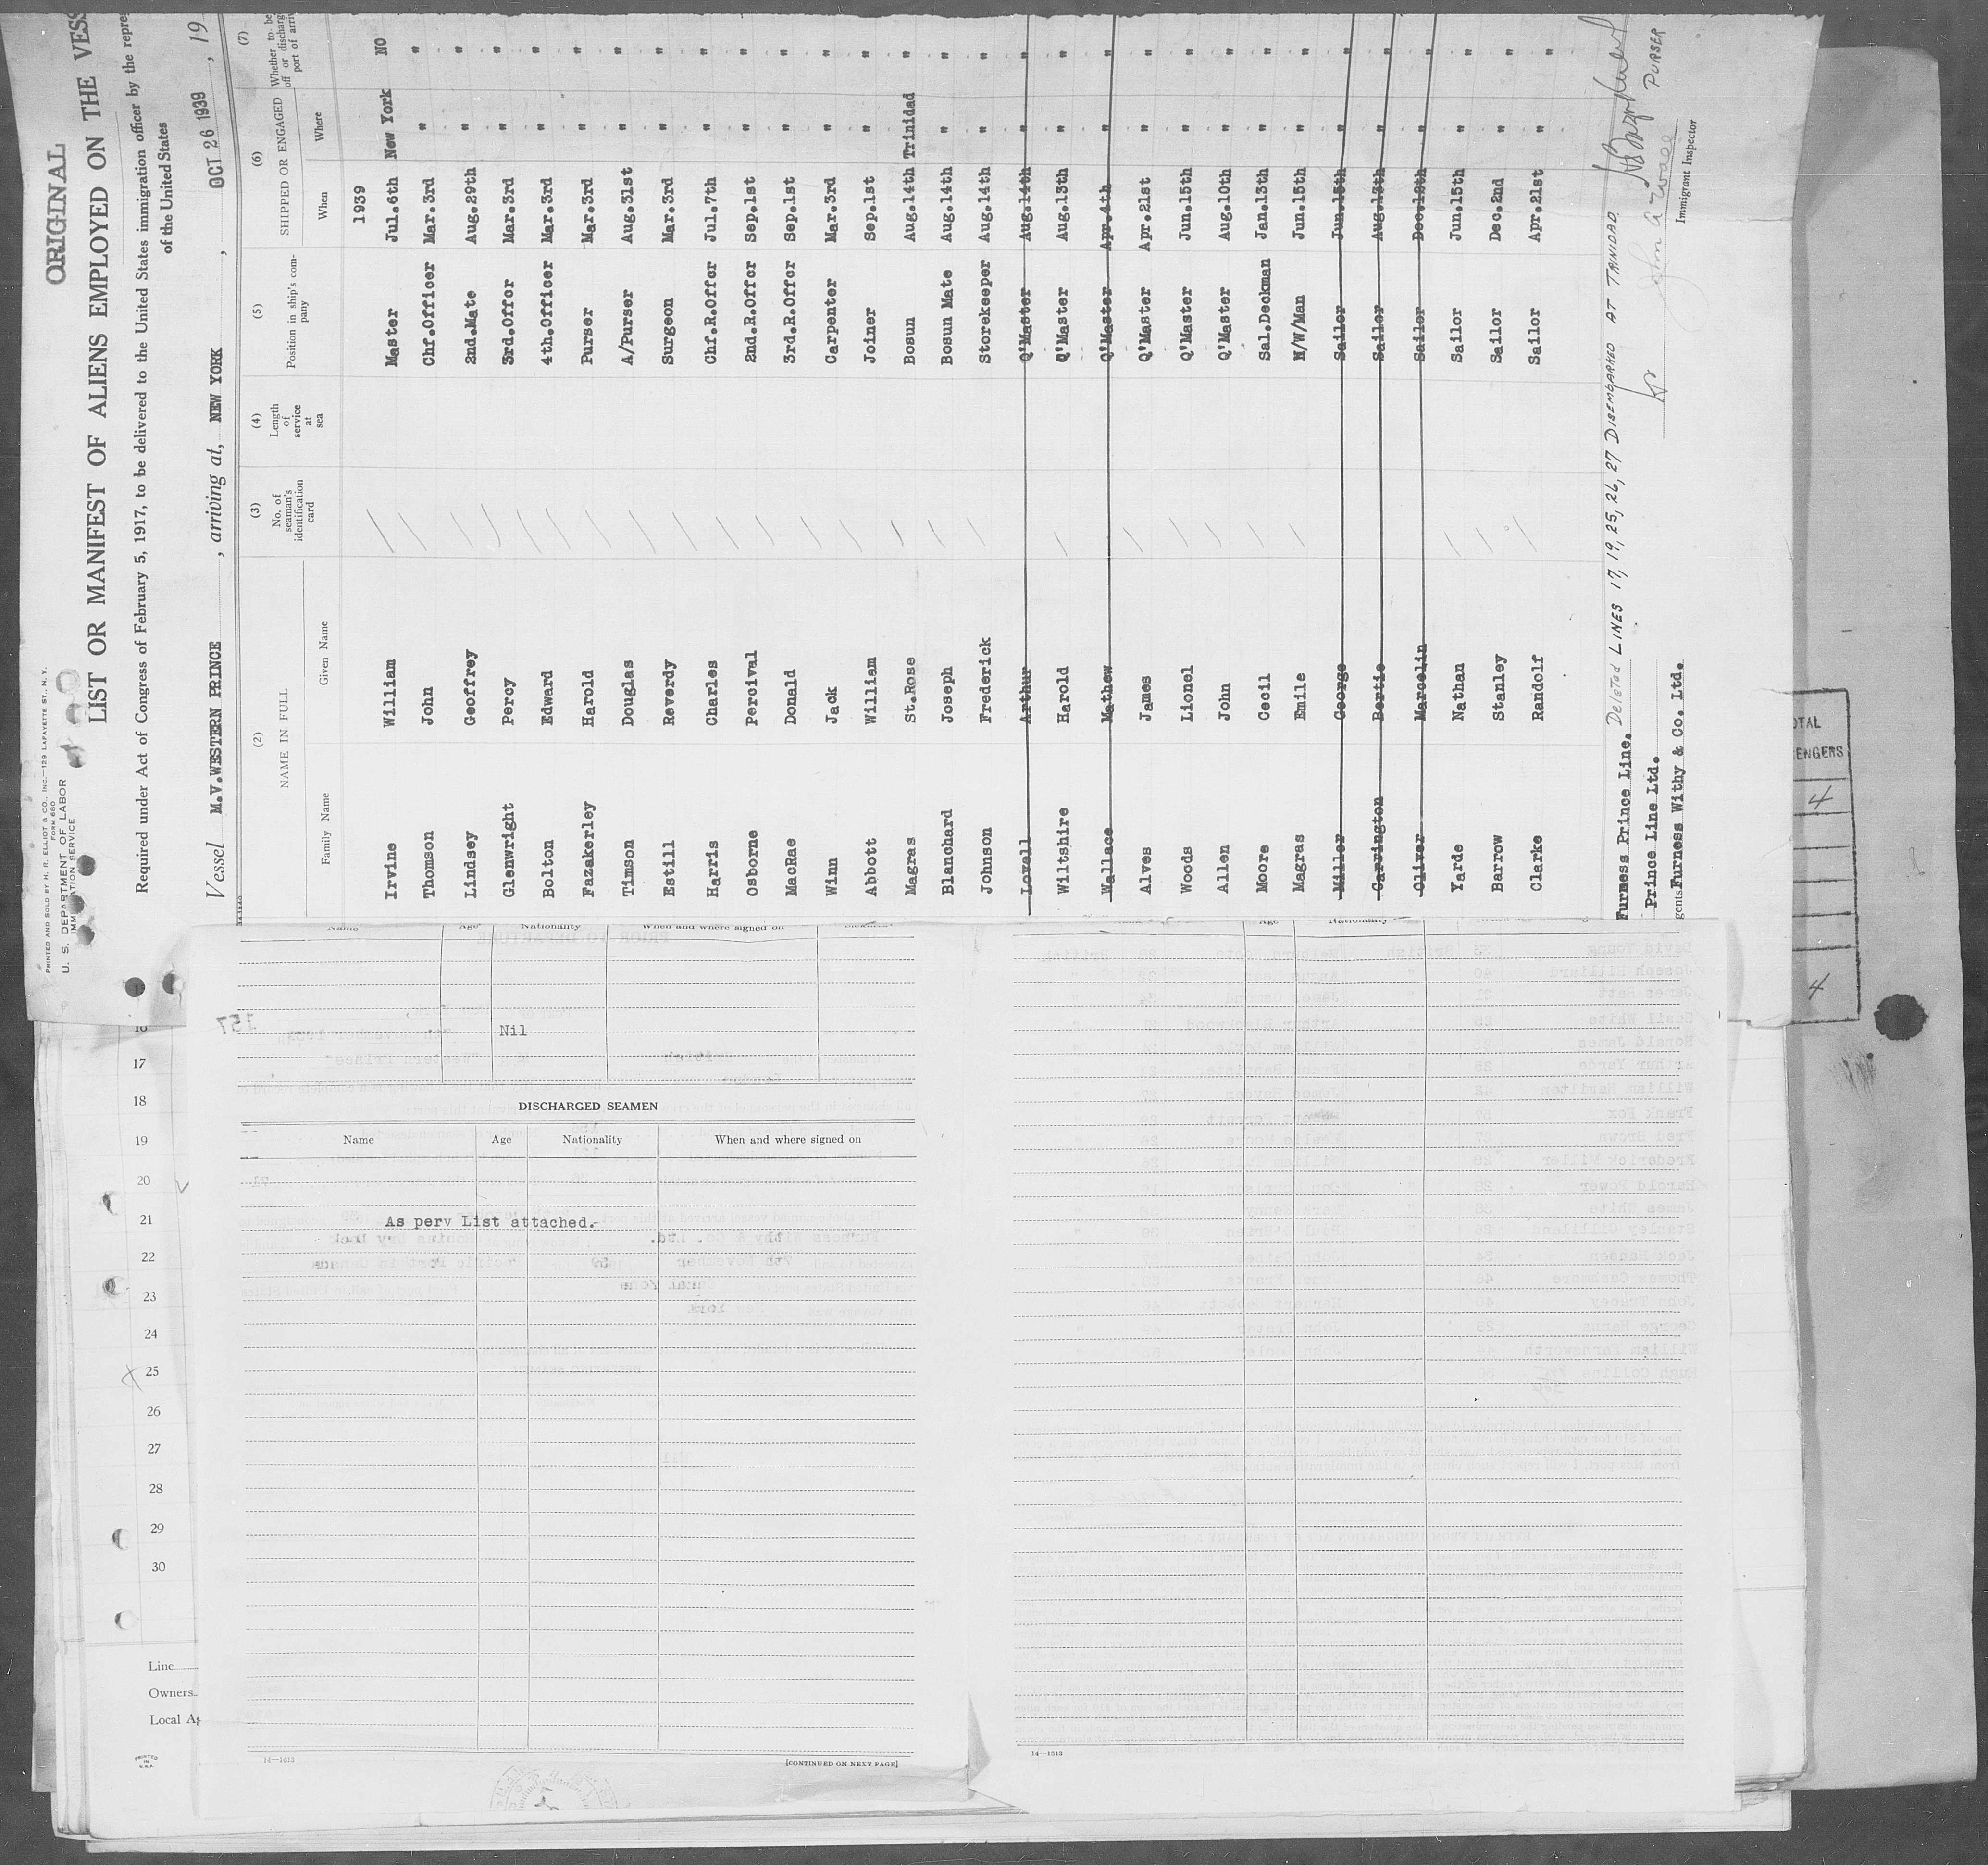 PRINTED AND SOLD BY H. R. ELLIOT & CO., INC.—129 LAFAYETTE ST., N. Y.
FORM 680
U. S. DEPARTMENT OF LABOR
IMMIGRATION SERVICE
ORIGINAL
LIST OR MANIFEST OF ALIENS EMPLOYED ON THE VESS
Required under Act of Congress of February 5, 1917, to be delivered to the United States immigration officer by the repre
of the United States
Vessel M.V.WESTERN PRINCE, arriving at, NEW YORK, OCT 26 1939, 19
(2) (3) (4) (5) (6) (7)
NAME IN FULL No. of seaman's identification card Length of service at sea Position in ship's company SHIPPED OR ENGAGED Whether to be off or discharg port of arriv
Family Name Given Name When Where
1939
Irvine William Master Jul.6th New York NO
Thomson John Chf.Officer Mar.3rd " "
Lindsey Geoffrey 2nd.Mate Aug.29th " "
Glenwright Percy 3rd.Offcr Mar.3rd " "
Bolton Edward 4th.Officer Mar.3rd " "
Fazakerley Harold Purser Mar.3rd " "
Timson Douglas A/Purser Aug.31st " "
Estill Reverdy Surgeon Mar.3rd " "
Harris Charles Chf.R.Offcr Jul.7th " "
Osborne Percival 2nd.R.Offcr Sep.1st " "
MacRae Donald 3rd.R.Offcr Sep.1st " "
Winn Jack Carpenter Mar.3rd " "
Abbott William Joiner Sep.1st " "
Magras St.Rose Bosun Aug.14th Trinidad "
Blanchard Joseph Bosun Mate Aug.14th " "
Johnson Frederick Storekeeper Aug.14th " "
Lovell Arthur Q'Master Aug.14th " "
Wiltshire Harold Q'Master Aug.13th " "
Wallace Mathew Q'Master Apr.4th " "
Alves James Q'Master Apr.21st " "
Woods Lionel Q'Master Jun.15th " "
Allen John Q'Master Aug.10th " "
Moore Cecil Sal.Deckman Jan.13th " "
Magras Emile N/W/Man Jun.15th " "
Miller George Sailor Jun.15th " "
Carrington Bertie Sailor Aug.13th " "
Oliver Marcelin Sailor Dec.12th " "
Yarde Nathan Sailor Jun.15th " "
Barrow Stanley Sailor Dec.2nd " "
Clarke Randolf Sailor Apr.21st " "
Furness Prince Line. Deleted LINES 17, 19, 25, 26, 27 DISEMBARKED AT TRINIDAD
PURSER
Prince Line Ltd.
gents Furness Withy & Co. Ltd.
Immigrant Inspector
OTAL
ENGERS
4
4
16
17
18
19
20
21
22
23
24
25
26
27
28
29
30
Line
Owners
Local A
PRINTED IN U.S.A.
Name Age Nationality When and where signed on
Nil
DISCHARGED SEAMEN
Name Age Nationality When and where signed on
As perv List attached.
14—1613 [CONTINUED ON NEXT PAGE]
Age Nationality
14—1613